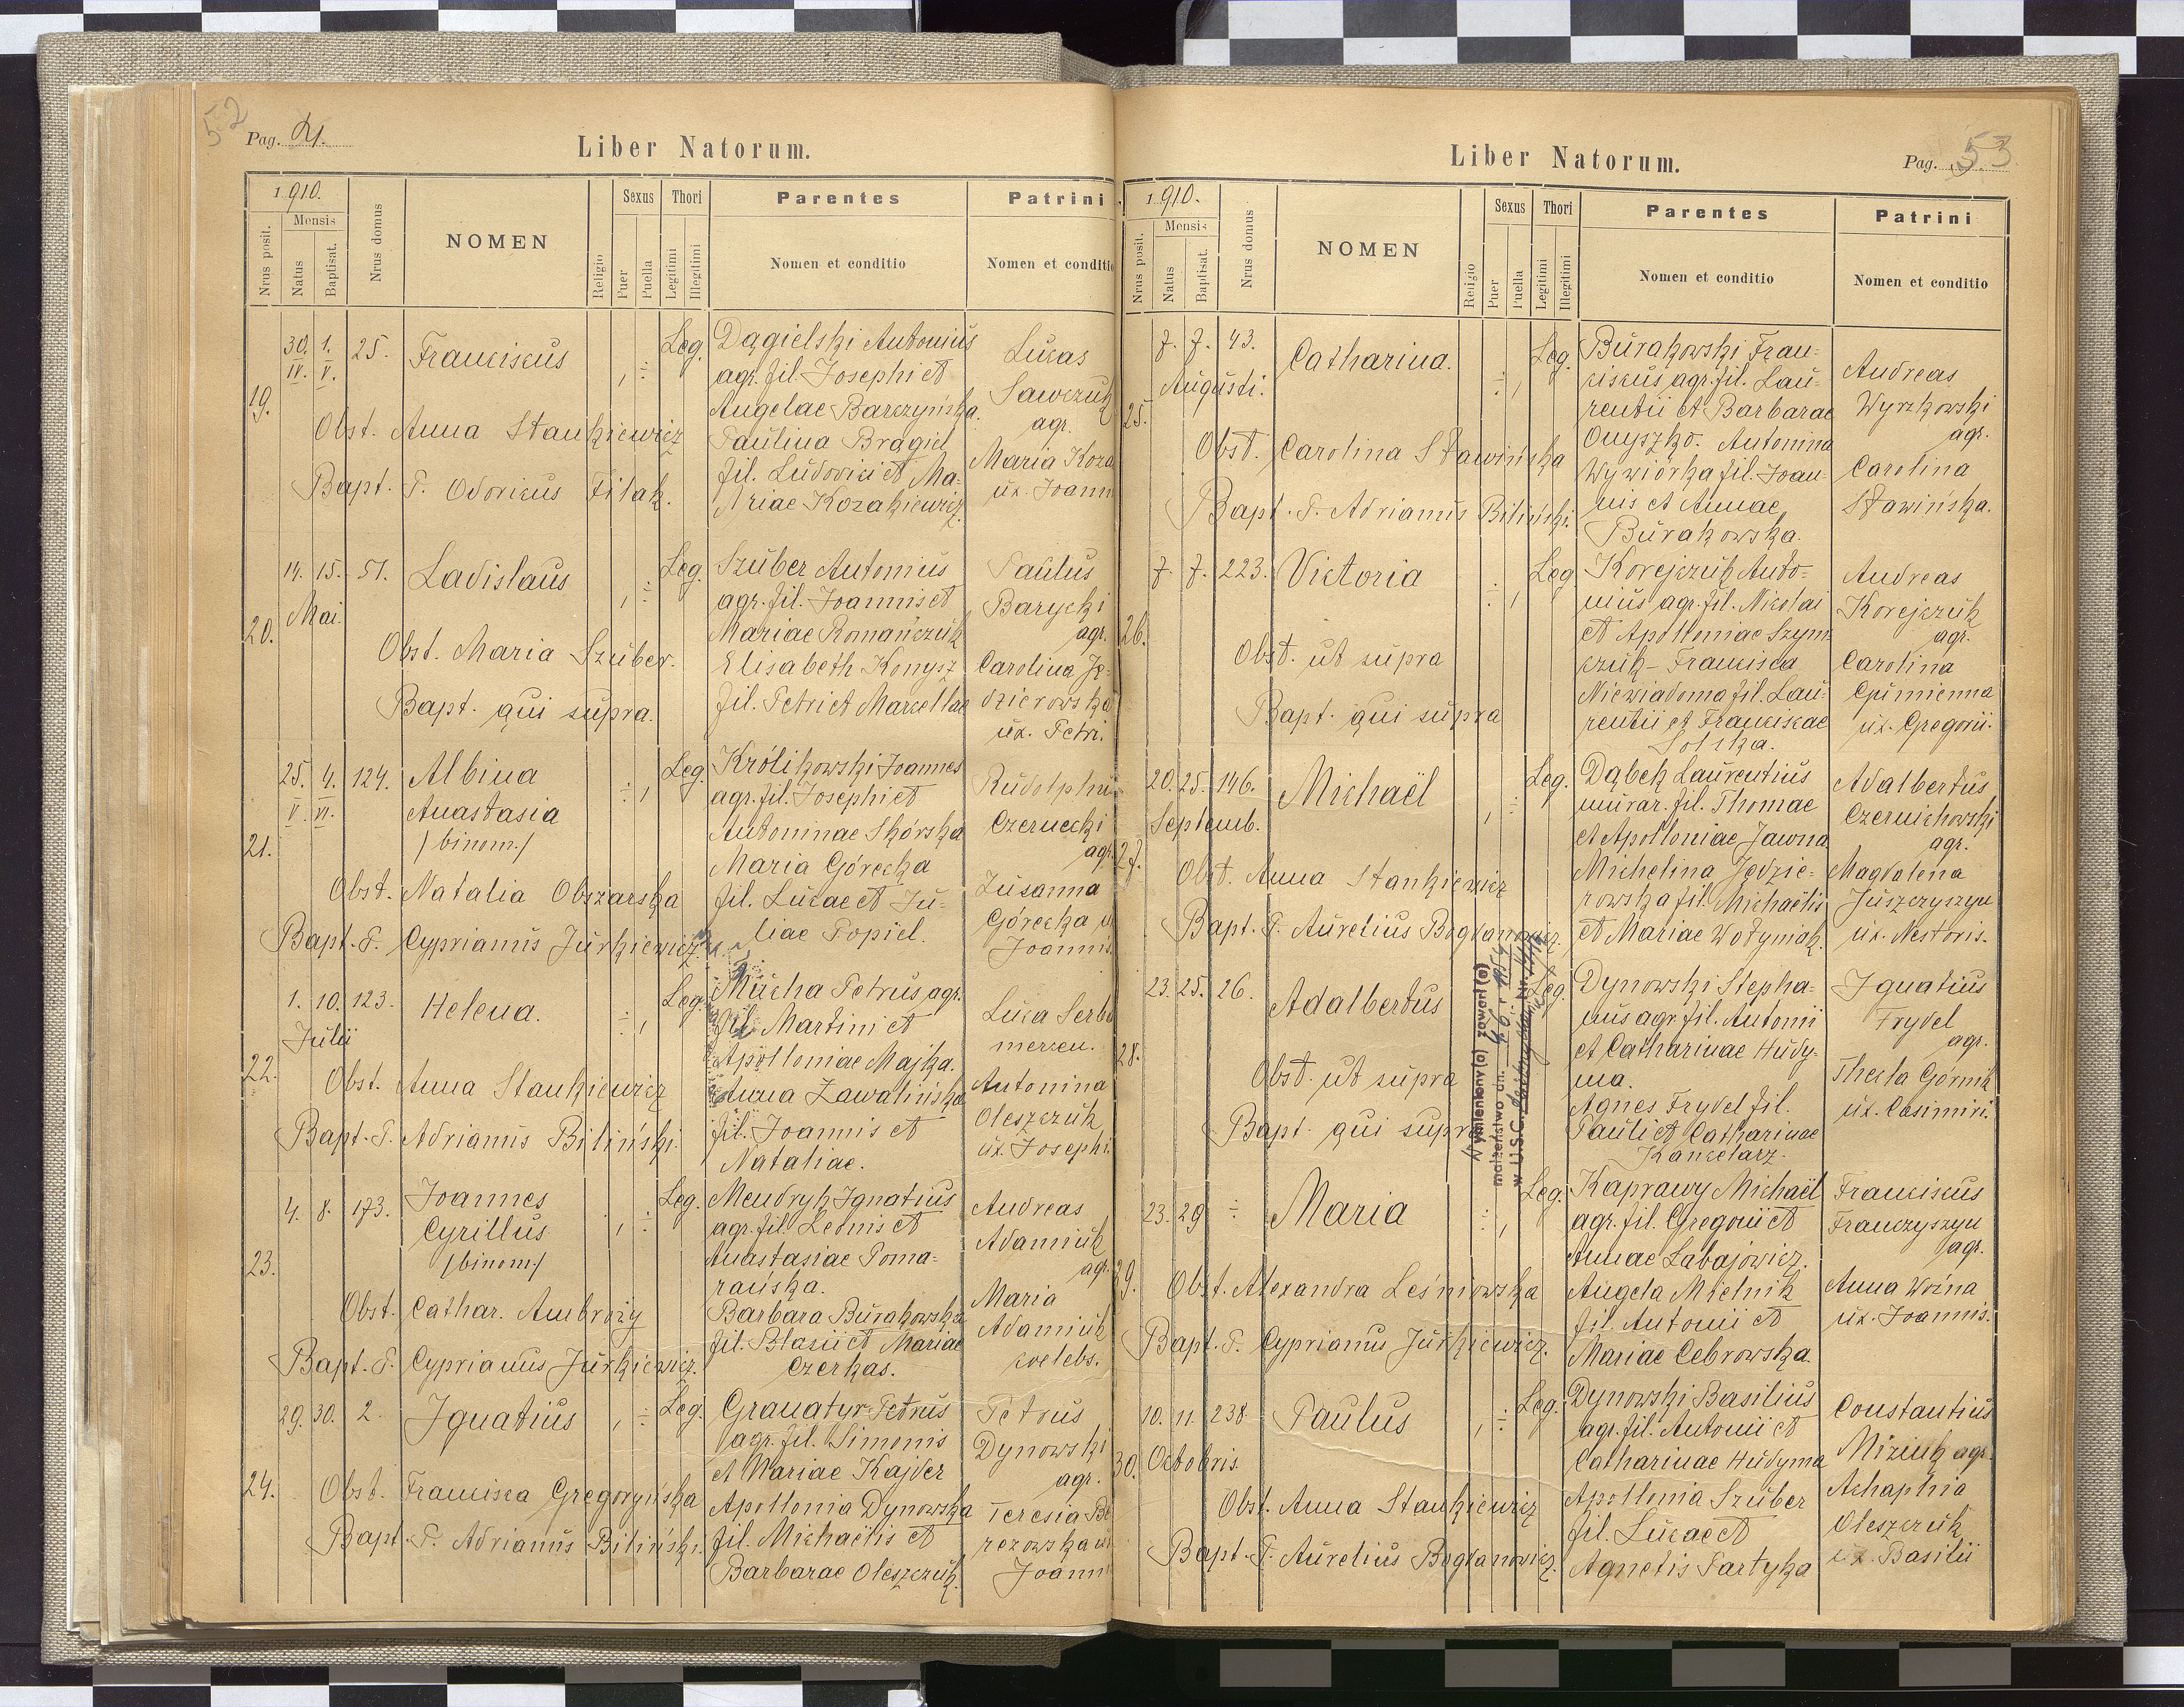 52
Pag. 4.
Liber Natorum.
1910.
Mensis
Nrus posit.
Natus
Baptisat.
Nrus domus
NOMEN
Religio
Sexus
Puer
Puella
Thori
Legitimi
Illegitimi
Parentes
Nomen et conditio
Patrini
Nomen et conditio
19.
30. 1. 25. Franciscus Leg.
IV. V.
Obst. Anna Stankiewicz
Bapt. P. Odoricus Filak.
Dągielski Antonius
agr. fil. Josephi et
Angelae Barczyńska.
Paulina Brągiel
fil. Ludovici et Ma-
riae Kozakiewicz.
Lucas
Sawczuk
agr.
Maria Koza
ux. Joann
20.
14. 15. 51. Ladislaus Leg.
Mai.
Obst. Maria Szuber.
Bapt. qui supra.
Szuber Antonius
agr. fil. Joannis et
Mariae Romańczuk
Elisabeth Konysz
fil. Petri et Marcellae
Paulus
Barycki
agr.
Carolina Ję-
dzierowska
ux. Petri.
21.
25. 4. 124. Albina Leg.
V. VI. Anastasia
/binom./
Obst. Natalia Obszarska
Bapt. P. Cyprianus Jurkiewicz.
Królikowski Joannes
agr. fil. Josephi et
Antoninae Skórska
Maria Górecka
fil. Lucae et Ju-
liae Popiel.
Rudolphus
Czernecki
agr.
Zusanna
Górecka u
Joannis
22.
1. 10. 123. Helena. Leg.
Julii
Obst. Anna Stankiewicz
Bapt. P. Adrianus Biliński.
Mucha Petrus agr.
fil. Martini et
Apolloniae Majka.
Anna Zawalińska
fil. Joannis et
Nataliae.
Luca Serbe
mercen.
Antonina
Oleszczuk
ux. Josephi.
23.
4. 8. 173. Joannes Leg.
Cyrillus
/binom./
Obst. Cathar. Ambroży
Bapt. P. Cyprianus Jurkiewicz.
Mendryk Ignatius
agr. fil. Leonis et
Anastasiae Poma-
rańska.
Barbara Burakowska
fil. Blasii et Mariae
Czerkas.
Andreas
Adamiuk
agr.
Maria
Adamiuk
coelebs.
24.
29. 30. 2. Ignatius Leg.
Obst. Francisca Gregoryńska
Bapt. P. Adrianus Biliński.
Granatyr Petrus
agr. fil. Simonis
et Mariae Kajder
Apollonia Dynowska
fil. Michaëlis et
Barbarae Oleszczuk.
Petrus
Dynowski
agr.
Teresia Be
rezowska u
Joann
Liber Natorum.
Pag. 53.
1910.
Mensis
Nrus posit.
Natus
Baptisat.
Nrus domus
NOMEN
Religio
Sexus
Puer
Puella
Thori
Legitimi
Illegitimi
Parentes
Nomen et conditio
Patrini
Nomen et conditio
25.
7. 7. 43. Catharina. Leg.
Augusti.
Obst. Carolina Sławińska
Bapt. P. Adrianus Biliński.
Burakowski Fran-
ciscus agr. fil. Lau-
rentii et Barbarae
Onyszko. Antonina
Wywiórka fil. Joan-
nis et Annae
Burakowska.
Andreas
Wyrzkowski
agr.
Carolina
Sławińska.
26.
7. 7. 223. Victoria Leg.
Obst. ut supra
Bapt. qui supra
Korejczuk Anto-
nius agr. fil. Nicolai
et Apolloniae Szym
czuk - Francisca
Niewiadoma fil. Lau-
rentii et Franciscae
Solska.
Andreas
Korejczuk
agr.
Carolina
Cpimienna
ux. Gregorii.
27.
20. 25. 146. Michaël Leg.
Septemb.
Obst. Anna Stankiewicz
Bapt. P. Aurelius Bogdanowicz.
Dąbek Laurentius
murar. fil. Thomae
et Apolloniae Jawna
Michelina Jędzie-
rowska fil. Michaëlis
et Mariae Wołyniak.
Adalbertus
Czernichowski
agr.
Magdalena
Juszczyszyn
ux. Nestoris.
28.
23. 25. 26. Adalbertus Leg.
Obst. ut supra
Bapt. qui supra
Wymieniony(a) zawarł(a)
małżeństwo dn.
w U.S.C.
Dynowski Stepha-
nus agr. fil. Antonii
et Catharinae Hudy-
ma.
Agnes Frydel fil.
Pauli et Catharinae
Kanclarz.
Ignatius
Frydel
agr.
Thecla Górnik
ux. Casimiri.
29.
23. 29 ÷ Maria Leg.
Obst. Alexandra Leśniowska
Bapt. P. Cyprianus Jurkiewicz.
Kaprawy Michaël
agr. fil. Gregorii et
Annae Łabajowicz.
Angela Mielnik
fil. Antonii et
Mariae Cebrowska.
Franciscus
Franczyszyn
agr.
Anna Woźna
ux. Joannis.
30.
10. 11. 238. Paulus Leg.
Octobris
Obst. Anna Stankiewicz
Bapt. P. Aurelius Bogdanowicz.
Dynowski Basilius
agr. fil. Antonii et
Catharinae Hudyma
Apollonia Szuber
fil. Lucae et
Agnetis Partyka
Constantius
Miziuk agr.
Achaphia
Oleszczuk
ux. Basilii